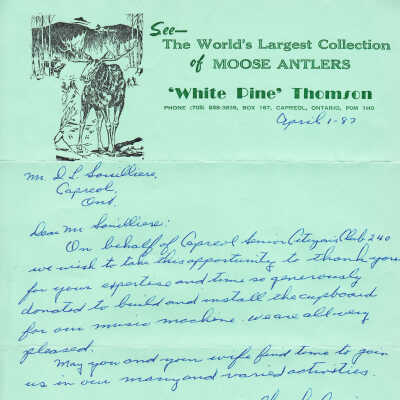 See—
The World's Largest Collection
of MOOSE ANTLERS
'White Pine' Thomson
PHONE (705) 858-3839, BOX 167, CAPREOL, ONTARIO, P0M 1H0
April 1-87
Mr. D L Souilliere
Capreol,
Ont.
Dear Mr Souilliere:
On behalf of Capreol Senior Citizens Club 240
we wish to take this opportunity to thank you
for your expertese and time so generously
donated to build and install the cupboard
for our music machine. We are all very
pleased.
May you and your wife find time to join
us in our many and varied activities.